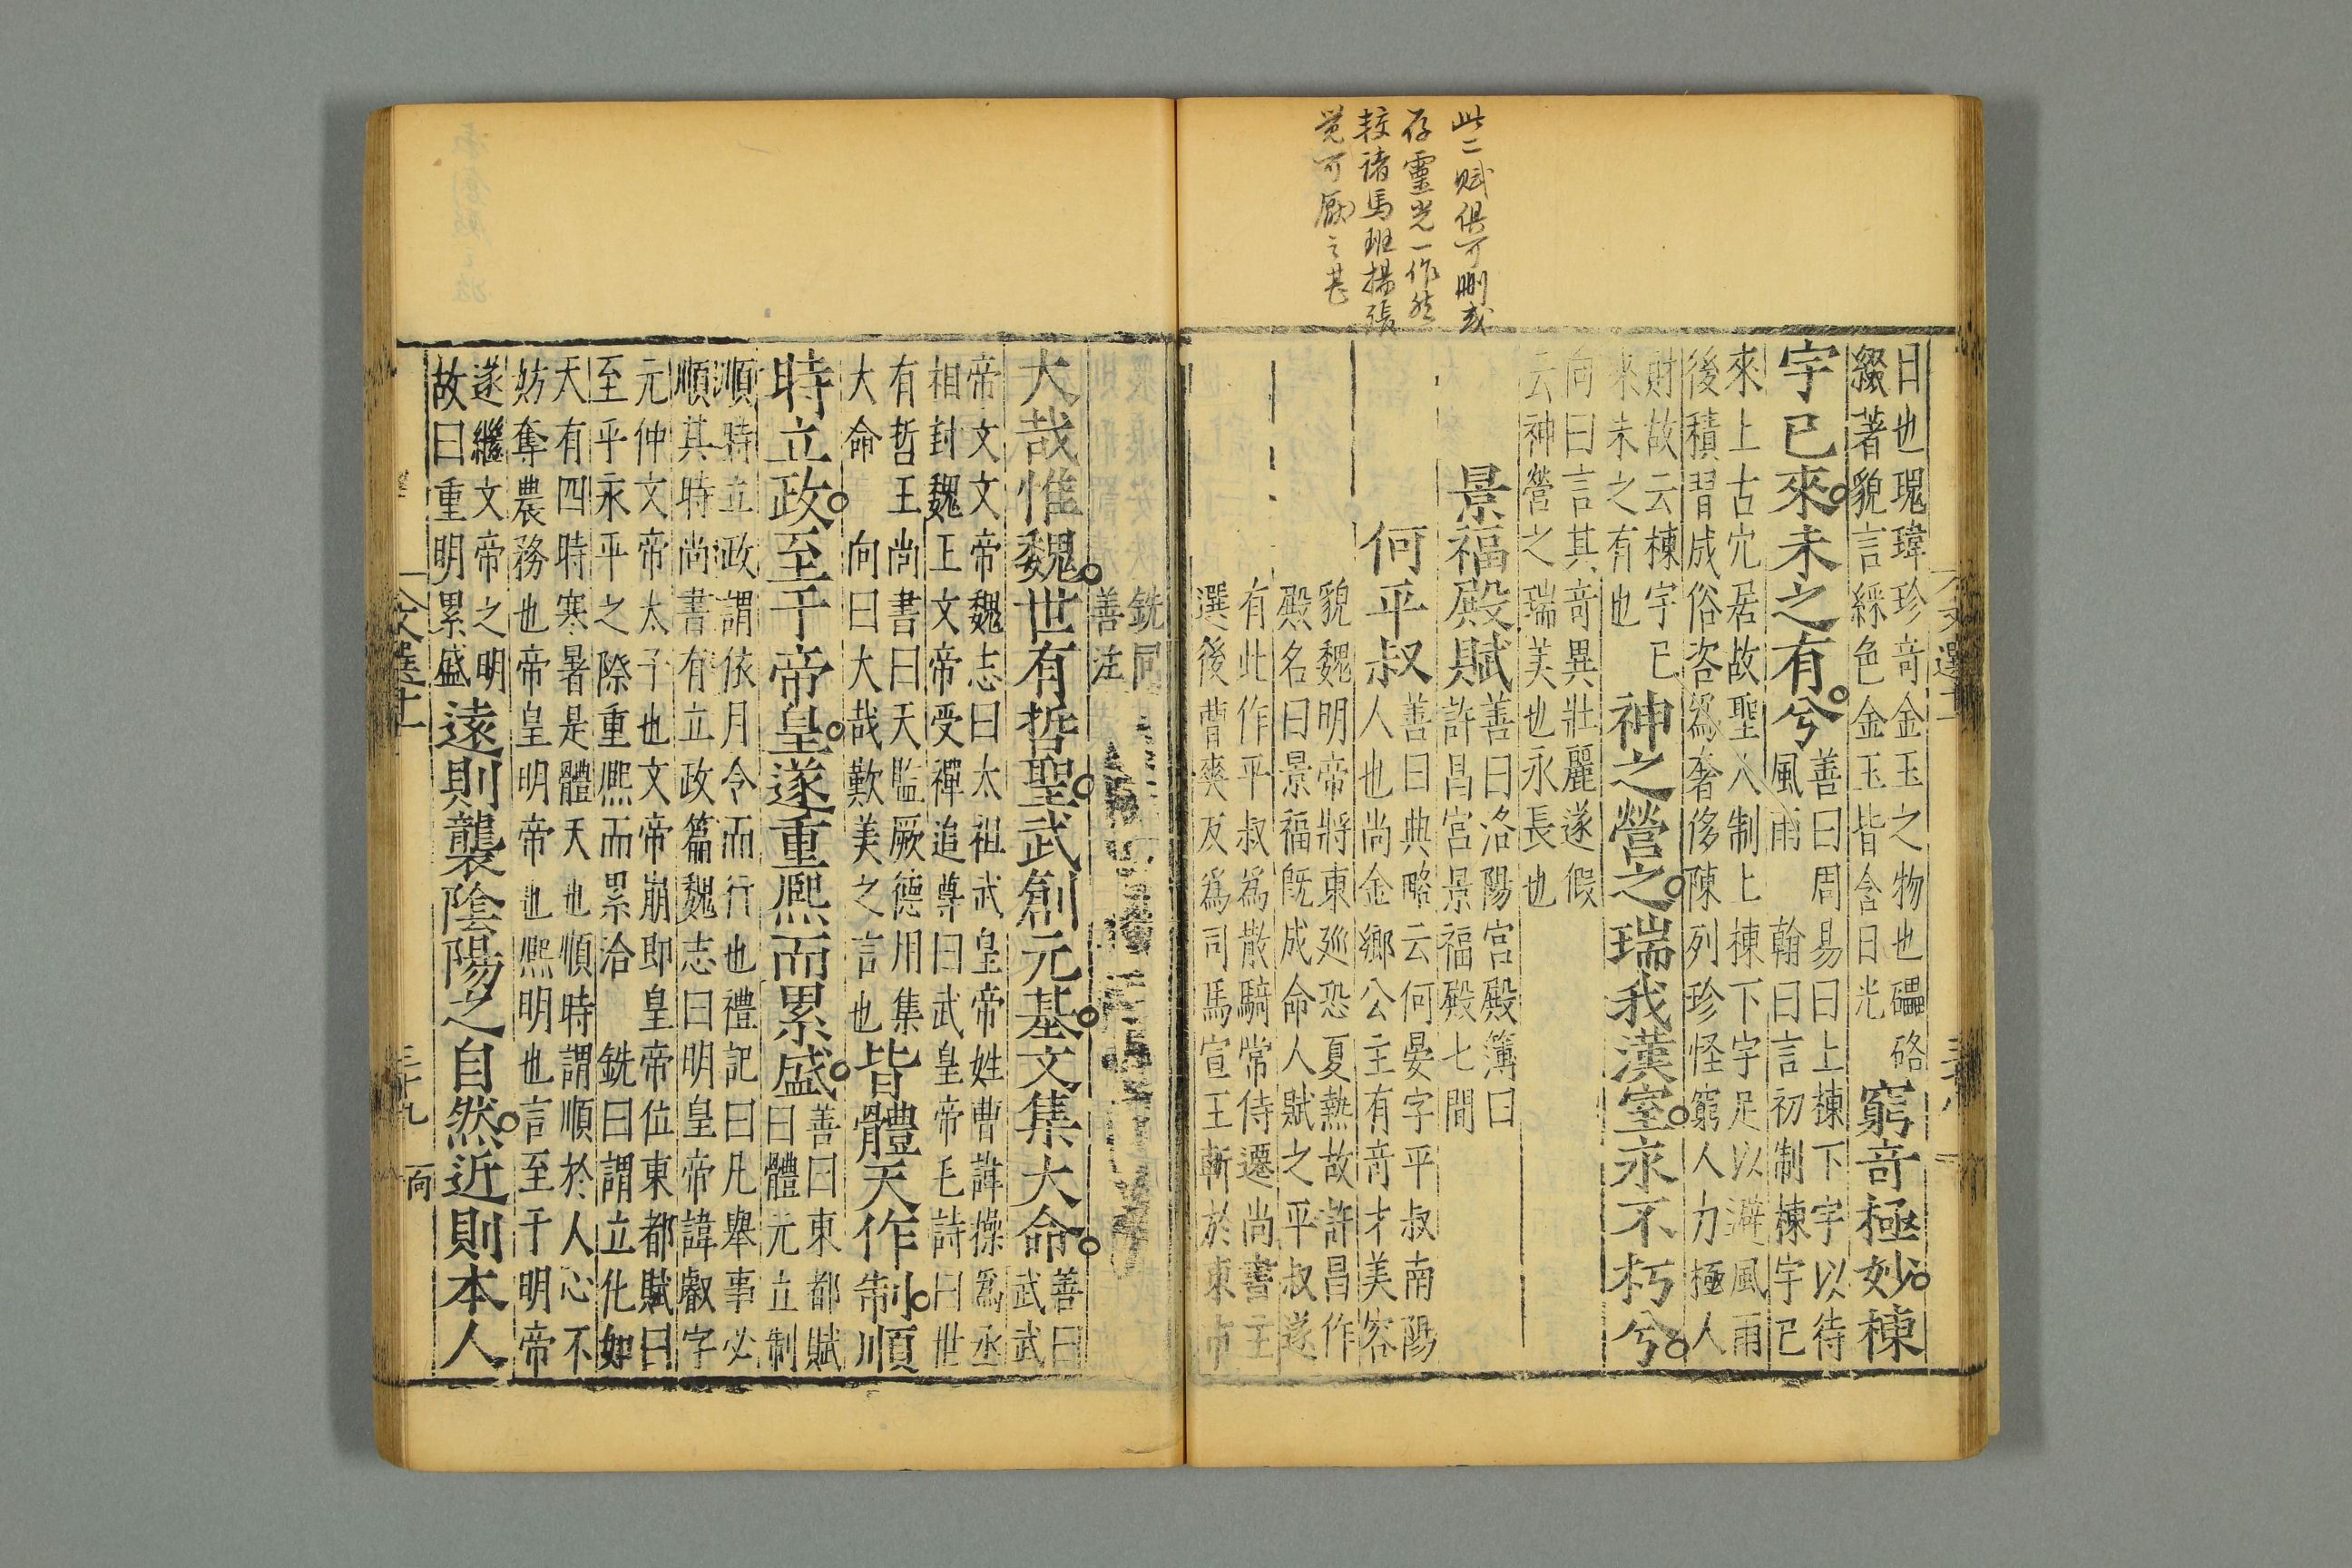 此二賦俱可刪或
存靈光一作然
較諸馬班揚張
覚可厭之甚
日也瑰瑋珍竒金玉之物也礧硌
綴著貌言綵色金玉皆含日光
窮竒極妙棟
宇已來未之有兮
善曰周易曰上棟下宇以待
風雨
翰曰言初制棟宇已
來上古穴居故聖人制上棟下宇足以避風雨
後積習成俗咨為奢侈陳列珍怪窮人力極人
財故云棟宇已
來未之有也
神之營之瑞我漢室永不朽兮
向曰言其竒異壯麗遂假
云神營之瑞美也永長也
景福殿賦
善曰洛陽宮殿簿曰
許昌宮景福殿七間
何平叔
善曰典略云何晏字平叔南陽
人也尚金鄉公主有竒才美容
貌魏明帝將東廵恐夏熱故許昌作
殿名曰景福旣成命人賦之平叔遂
有此作平叔為散騎常侍遷尚書主
選後曹爽反為司馬宣王斬於東市
銑同
善注
大哉惟魏世有哲聖武創元基文集大命
善曰
武武
帝文文帝魏志曰太祖武皇帝姓曹諱操為丞
相封魏王文帝受禪追尊曰武皇帝毛詩曰世
有哲王尚書曰天監厥德用集
大命 向曰大哉歎美之言也
皆體天作制順
時立政至于帝皇遂重熙而累盛
善曰東都賦
曰體元立制
順時立政謂依月令而行也禮記曰凡舉事必
順其時尚書有立政篇魏志曰明皇帝諱叡字
元仲文帝太子也文帝崩即皇帝位東都賦曰
至乎永平之際重熙而累洽 銑曰謂立化如
天有四時寒暑是體天也順時謂順於人心不
妨奪農務也帝皇明帝也熙明也言至于明帝
遂繼文帝之明
故曰重明累盛
遠則襲陰陽之自然近則本人
文選十一
三十九